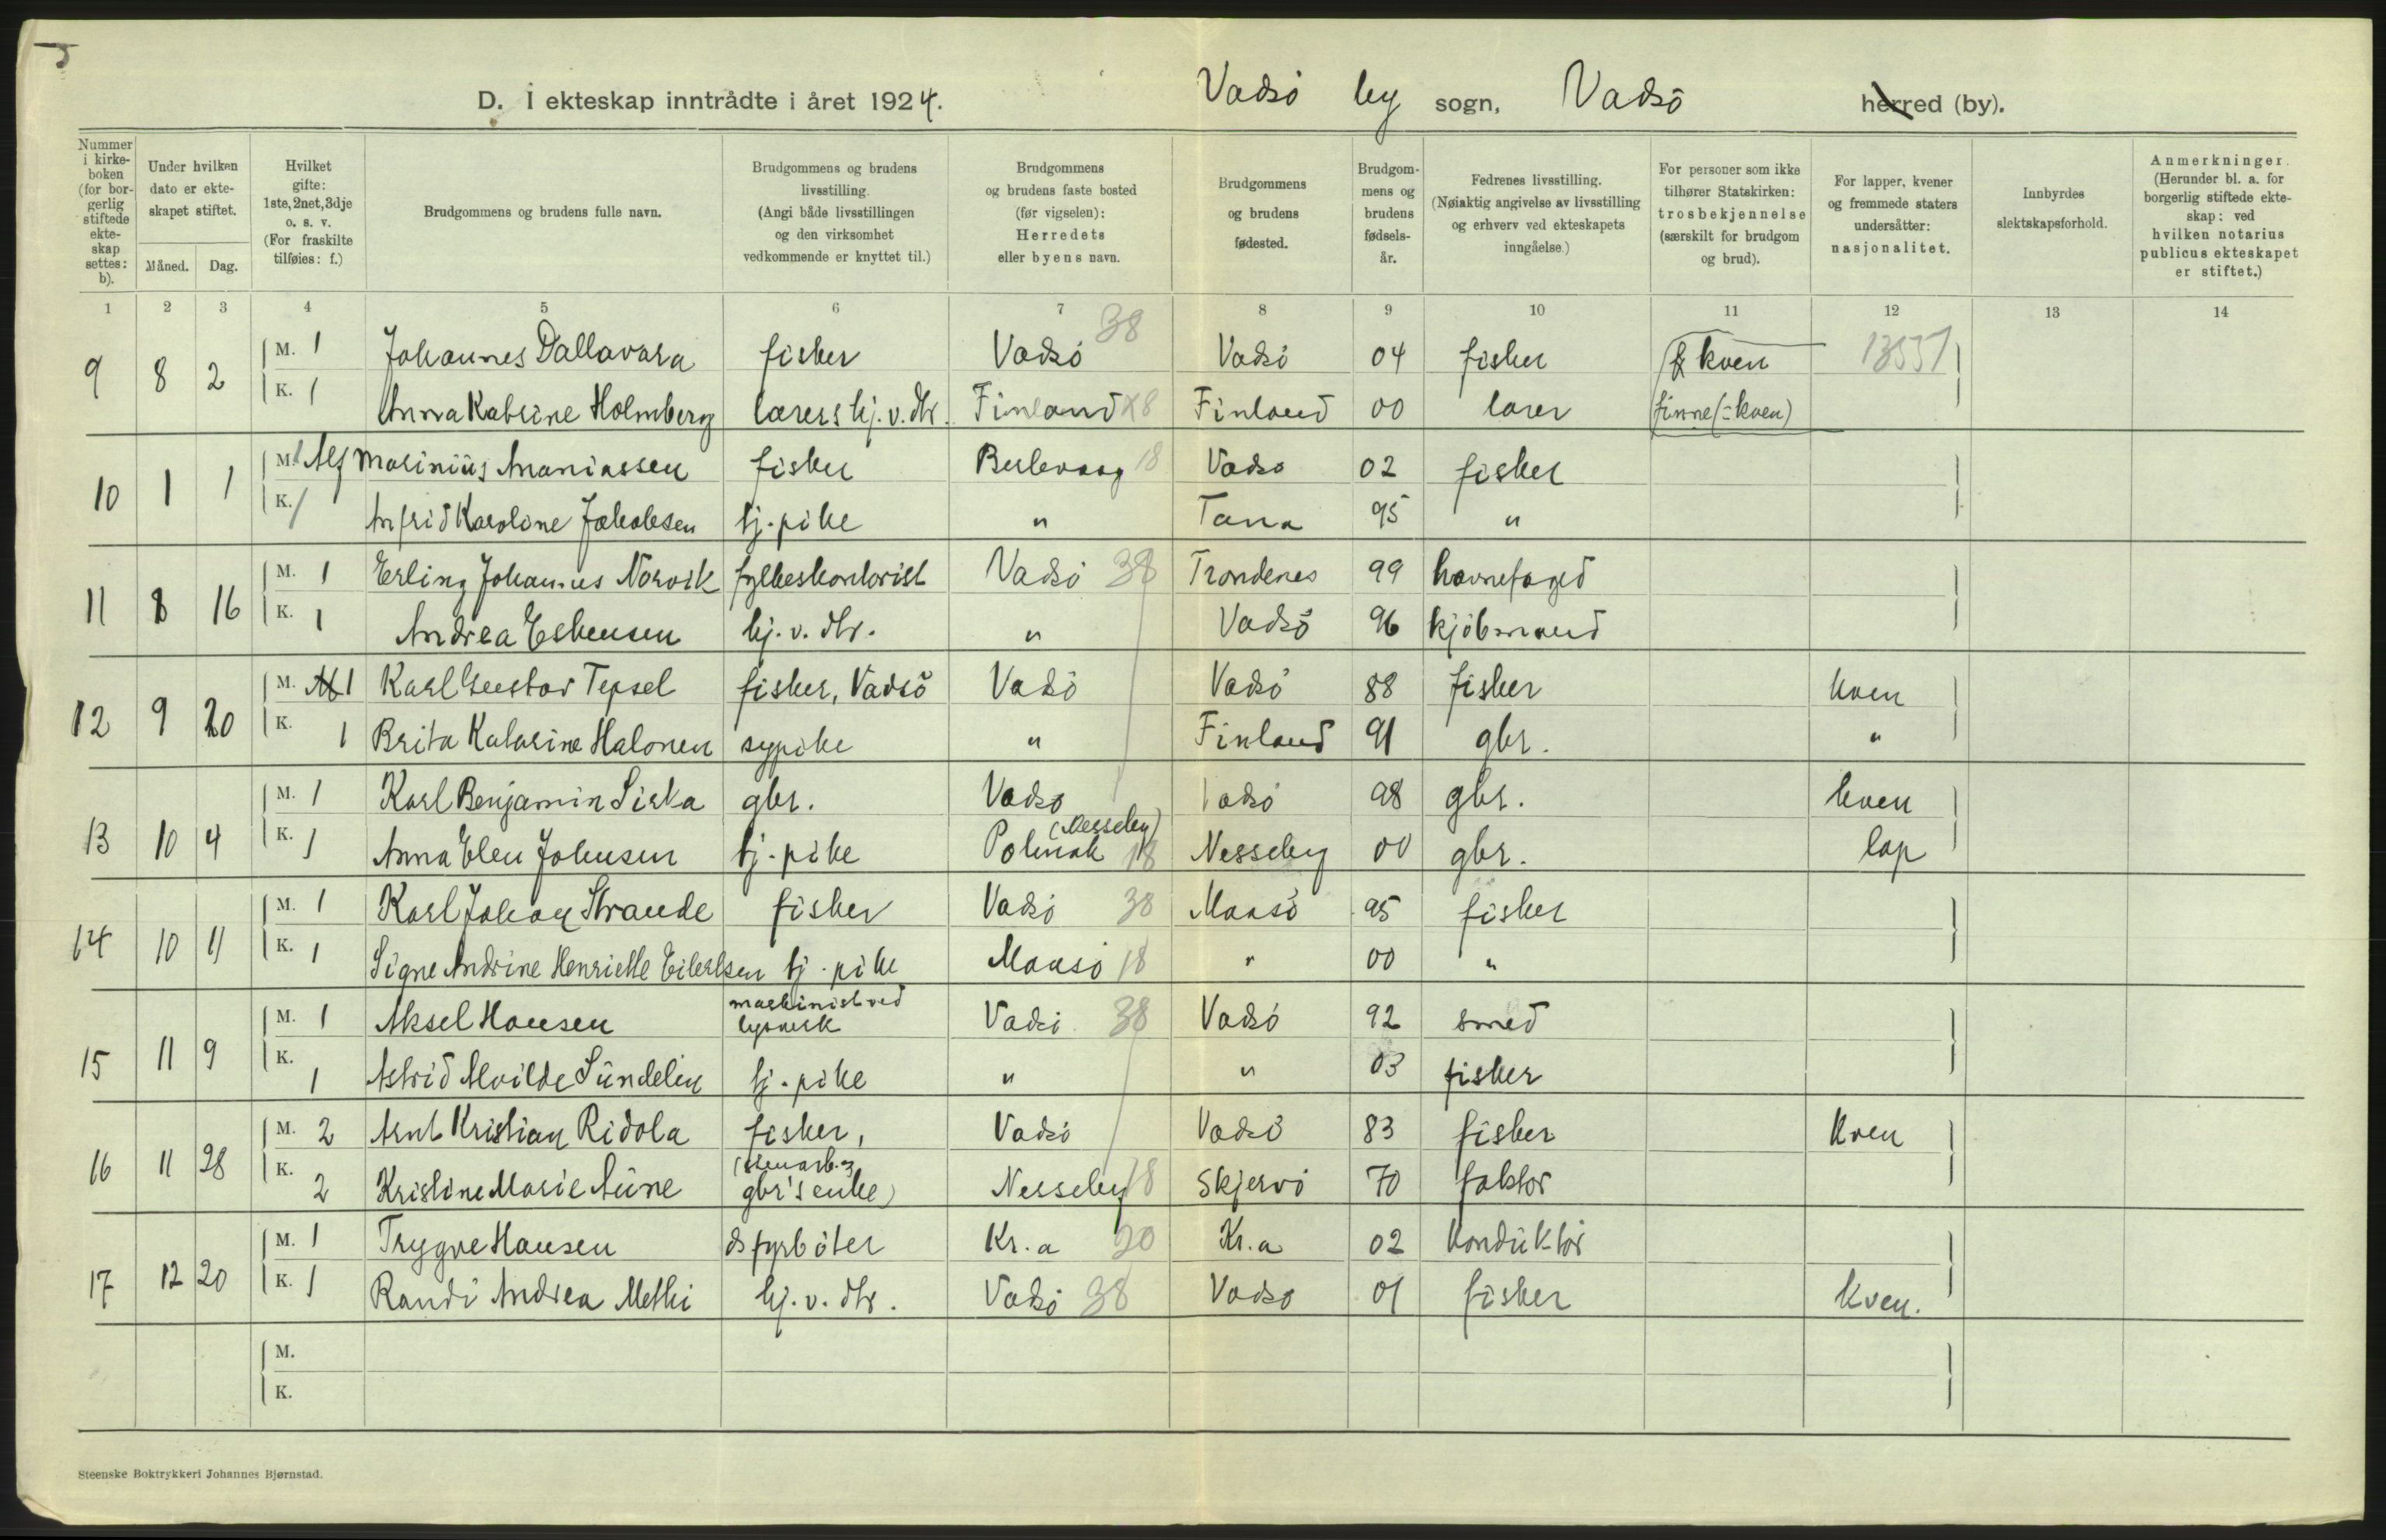 D. I ekteskap inntrådte i året 1924. Vadsö by sogn, Vadsö herred (by).
Nummer i kirkeboken (for borgerlig stiftede ekteskap settes: b).
Under hvilken dato er ekteskapet stiftet.
Måned. Dag.
Hvilket gifte: 1ste, 2net, 3dje o. s. v. (For fraskilte tilføies: f.)
Brudgommens og brudens fulle navn.
Brudgommens og brudens livsstilling. (Angi både livsstillingen og den virksomhet vedkommende er knyttet til.)
Brudgommens og brudens faste bosted (før vigselen): Herredets eller byens navn.
Brudgommens og brudens fødested.
Brudgommens og brudens fødselsår.
Fedrenes livsstilling. (Nøiaktig angivelse av livsstilling og erhverv ved ekteskapets inngåelse.)
For personer som ikke tilhører Statskirken: trosbekjennelse (særskilt for brudgom og brud).
For lapper, kvener og fremmede staters undersåtter: nasjonalitet.
Innbyrdes slektskapsforhold.
Anmerkninger. (Herunder bl. a. for borgerlig stiftede ekteskap: ved hvilken notarius publicus ekteskapet er stiftet.)
1 2 3 4 5 6 7 8 9 10 11 12 13 14
9 8 2 M. 1 Johannes Dallavara fisker Vadsö 38 Vadsö 04 fisker kven
K. 1 Anna Katrine Holmberg lærers hj. v. dtr. Finland Finland 00 lærer finne (= kven)
10 1 1 M. 1 Alf Marinius Ananiassen fisker Berlevaag 18 Vadsö 02 fisker
K. 1 Anfrid Karoline Jakobsen tj. pike " Tana 95 "
11 8 16 M. 1 Erling Johannes Norvik fylkeskontorist Vadsö 38 Trondenes 99 havnefoged
K. 1 Andrea Esbensen hj. v. dtr. " Vadsö 96 kjöbmand
12 9 20 M. 1 Karl Gustav Tepsel fisker, Vadsö Vadsö Vadsö 88 fisker kven
K. 1 Brita Katarine Halonen sypike " Finland 91 gbr. "
13 10 4 M. 1 Karl Benjamin Sirka gbr. Vadsö Vadsö 98 gbr. kven
K. 1 Anna Elen Johnsen tj. pike Polmak (Nesseby) 18 Nesseby 00 gbr. lap
14 10 11 M. 1 Karl Johan Strande fisker Vadsö 38 Maasö 95 fisker
K. 1 Signe Andrine Henriette Eilertsen tj. pike Maasö 18 " 00 "
15 11 9 M. 1 Aksel Hansen maskinist ved lysverk Vadsö 38 Vadsö 92 smed
K. 1 Astrid Alvilde Sundelin tj. pike " " 03 fisker
16 11 28 M. 2 Arnt Kristian Ridola fisker, Vadsö Vadsö 83 fisker kven
K. 2 Kristine Marie Aune (stenarb. og gbr's enke) Nesseby 18 Skjervö 70 faktor
17 12 20 M. 1 Trygve Hansen dsfyrböter Kr.a 20 Kr.a 02 konduktör
K. 1 Randi Andrea Methi hj. v. dtr. Vadsö 38 Vadsö 01 fisker kven.
M.
K.
Steenske Boktrykkeri Johannes Bjørnstad.